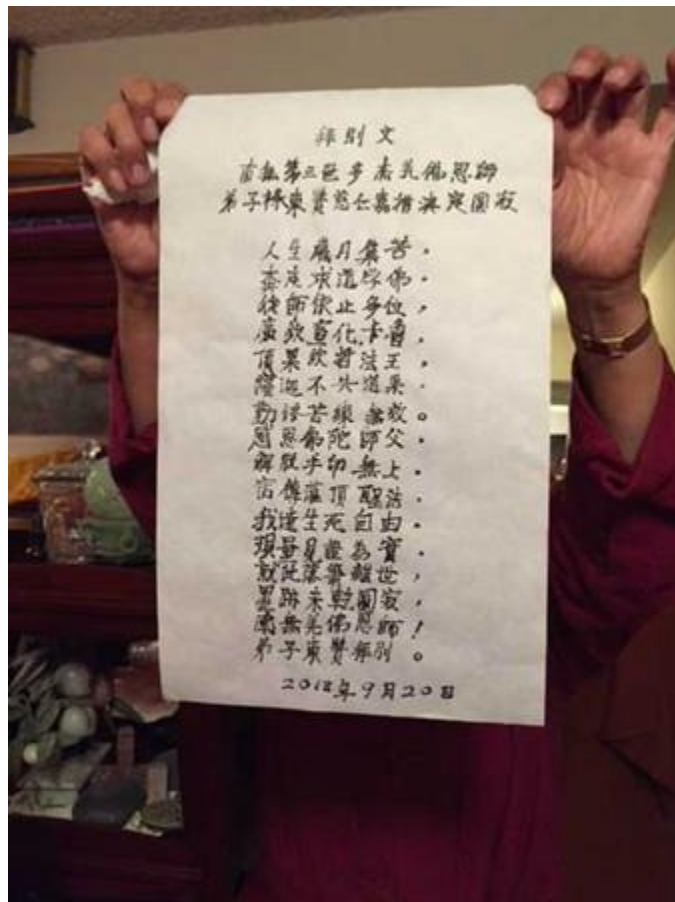 拜别文
南無第三世多杰羌佛恩師
弟子祿東贊慈仁嘉措演定圓寂
人生歲月集苦，
奔度求道学佛。
從師依止多位，
廣欽宣化卡魯，
頂果欽哲法王，
隆迦不共道果。
勤修苦練無放。
圓恩佛陀師父。
解脫手印無上
密傳灌頂聖法
我達生死自由。
現量見證為寶。
就此落筆離世，
墨跡未乾圓寂，
南無羌佛恩師！
弟子東贊拜别。
2018年9月20日